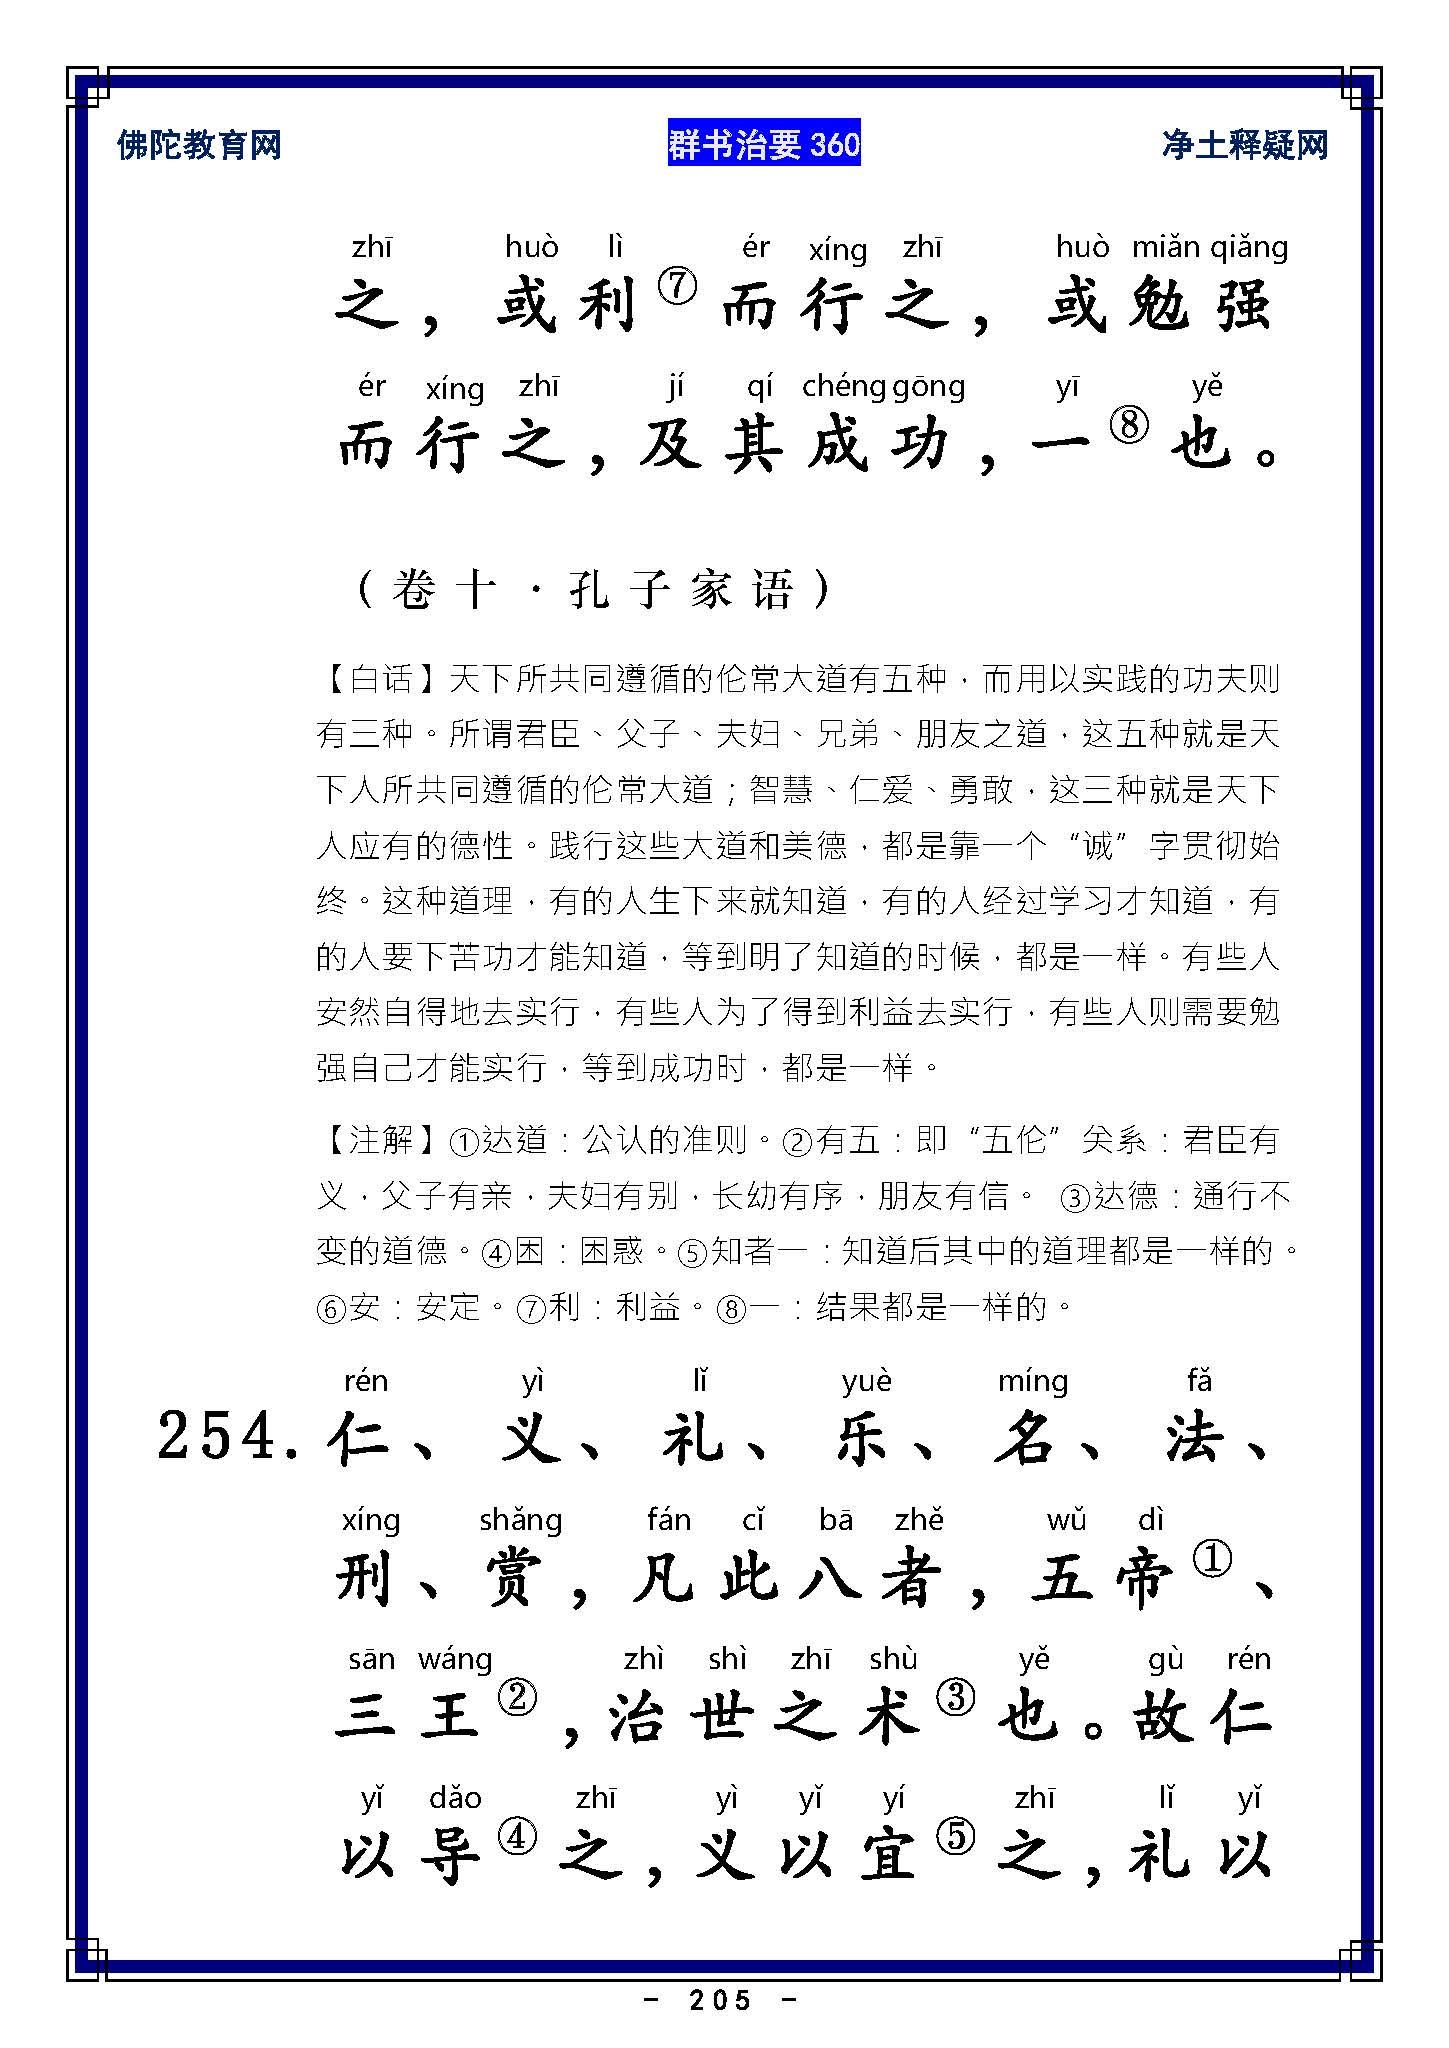 佛陀教育网 群书治要 360 净土释疑网
zhī huò lì ér xíng zhī huò miǎn qiǎng
之，或利⑦而行之，或勉强
ér xíng zhī jí qí chéng gōng yī yě
而行之，及其成功，一⑧也。
（卷十·孔子家语）
【白话】天下所共同遵循的伦常大道有五种，而用以实践的功夫则
有三种。所谓君臣、父子、夫妇、兄弟、朋友之道，这五种就是天
下人所共同遵循的伦常大道；智慧、仁爱、勇敢，这三种就是天下
人应有的德性。践行这些大道和美德，都是靠一个“诚”字贯彻始
终。这种道理，有的人生下来就知道，有的人经过学习才知道，有
的人要下苦功才能知道，等到明了知道的时候，都是一样。有些人
安然自得地去实行，有些人为了得到利益去实行，有些人则需要勉
强自己才能实行，等到成功时，都是一样。
【注解】①达道：公认的准则。②有五：即“五伦”关系：君臣有
义，父子有亲，夫妇有别，长幼有序，朋友有信。 ③达德：通行不
变的道德。④困：困惑。⑤知者一：知道后其中的道理都是一样的。
⑥安：安定。⑦利：利益。⑧一：结果都是一样的。
rén yì lǐ yuè míng fǎ
254. 仁、义、礼、乐、名、法、
xíng shǎng fán cǐ bā zhě wǔ dì
刑、赏，凡此八者，五帝①、
sān wáng zhì shì zhī shù yě gù rén
三王②，治世之术③也。故仁
yǐ dǎo zhī yì yǐ yí zhī lǐ yǐ
以导④之，义以宜⑤之，礼以
- 205 -